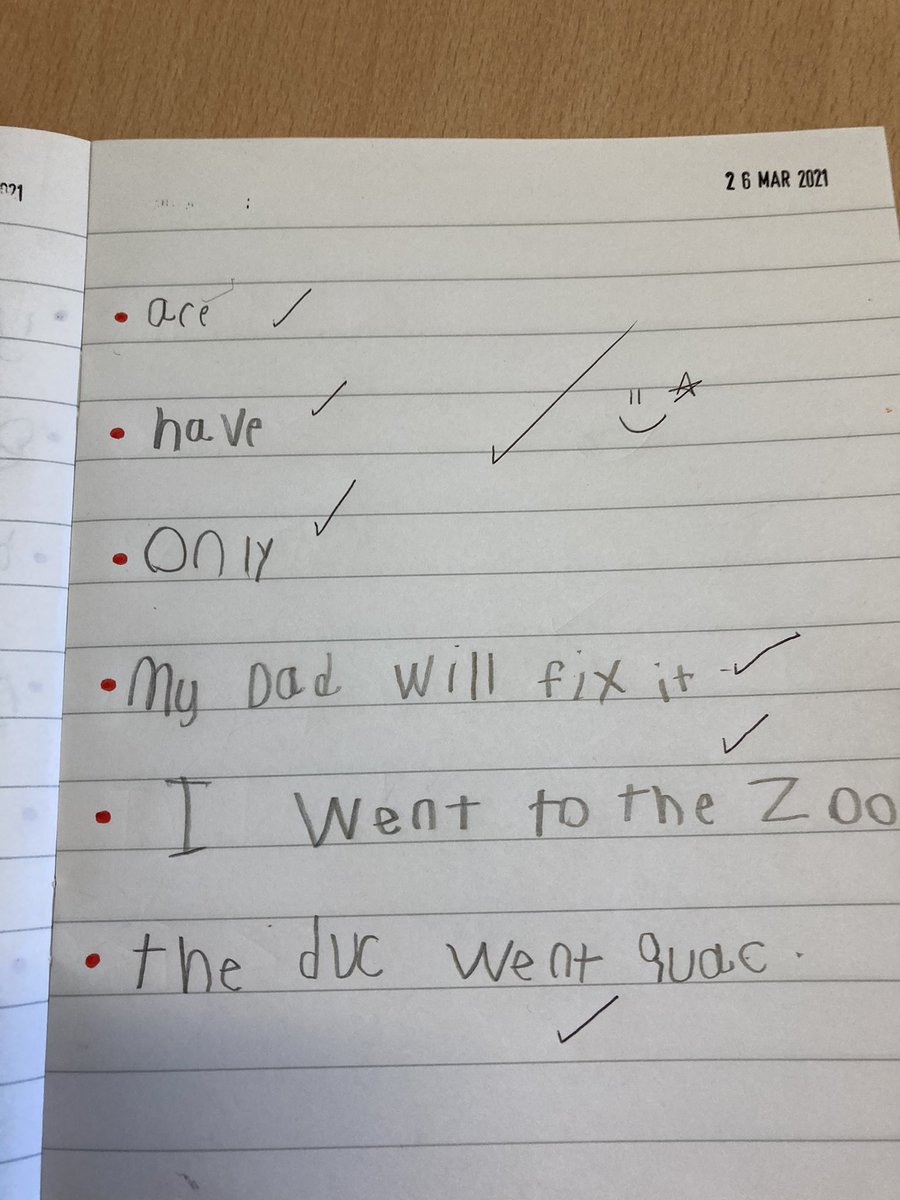 26 MAR 2021
are
have
Only
My Dad will fix it
I went to the Zoo
the duc went quac.